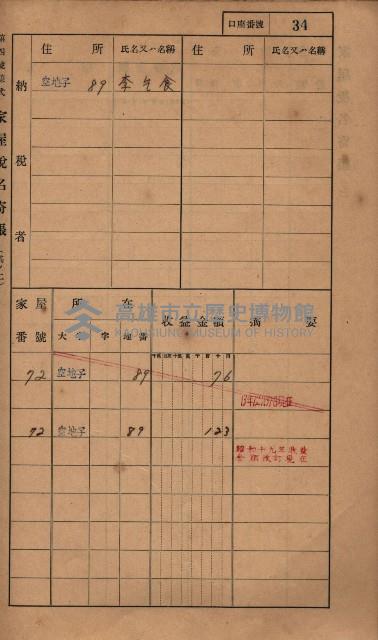 口座番號 34
第四號樣式 家屋稅名寄帳
納稅者
住所 氏名又ハ名稱 住所 氏名又ハ名稱
空地子 89 李乞食
家屋番號 所在 收益金額 摘要
大字 字 地番
72 空地子 89 76
72 空地子 89 123
昭和十九年收益
金額改訂現在
高雄市立歷史博物館
KAOHSIUNG MUSEUM OF HISTORY